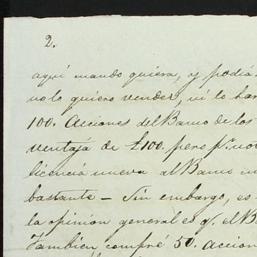 2.
aquí mando quiera, y podia
no lo quiero vender, ni lo har
100. Acciones del Banco de los
ventaja de £100. pero pr. no
licencia nueva al Banco in
bastante — Sin embargo, es
la opinion general es q. el B
Tambien compré 50. Accion